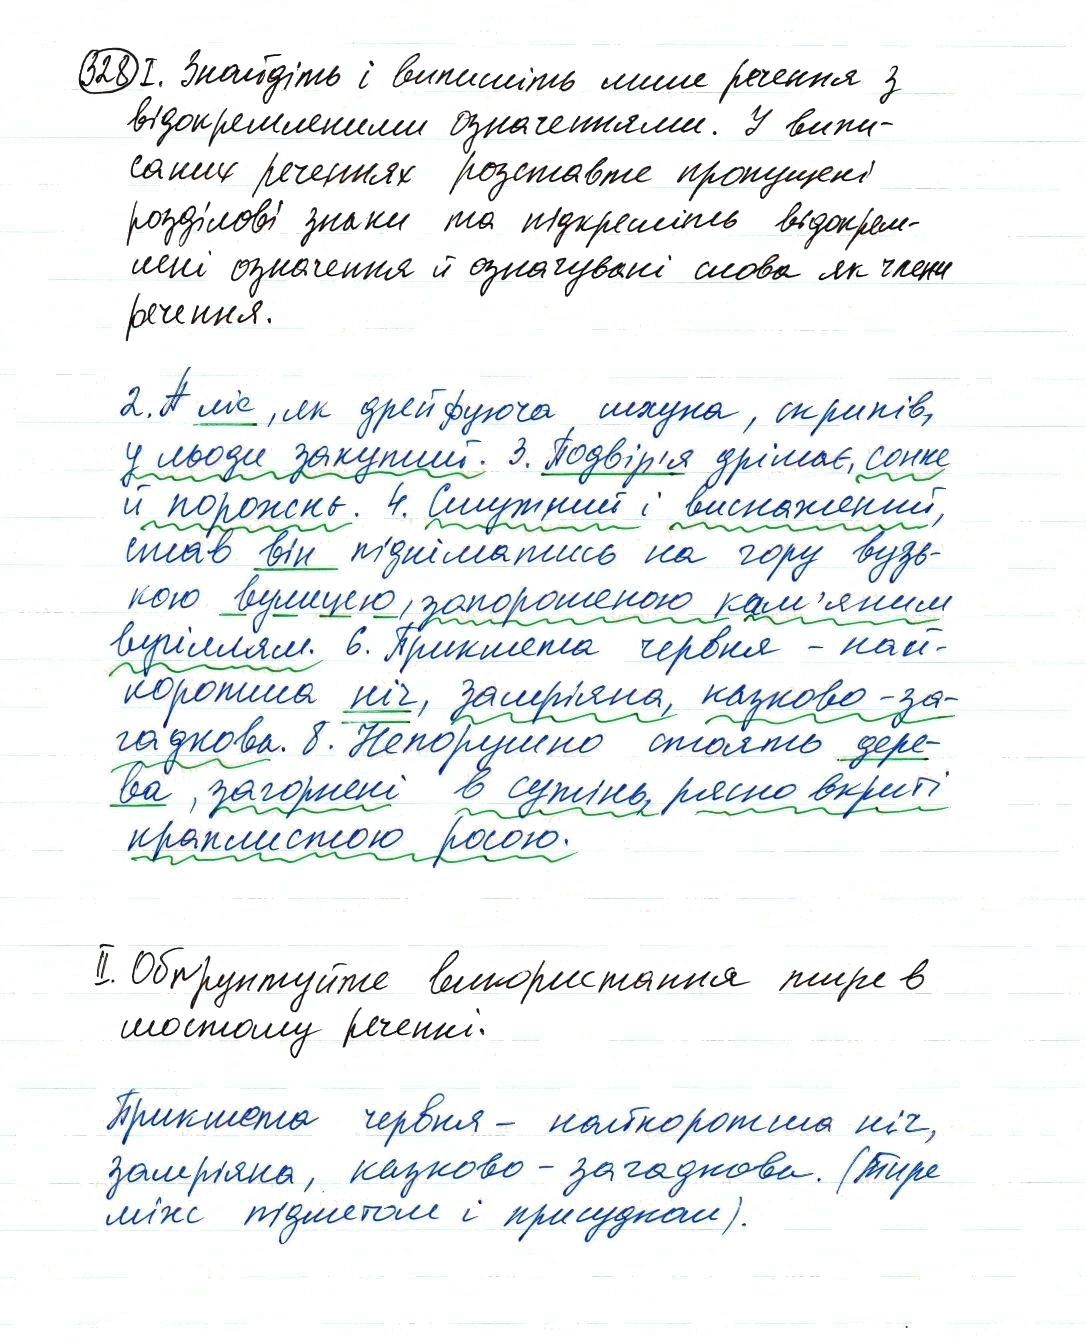 328 I. Знайдіть і випишіть лише речення з
відокремленими означеннями. У випи-
саних реченнях розставте пропущені
розділові знаки та підкресліть відокрем-
лені означення й означувані слова як члени
речення.
2. А ліс, як дрейфуюча шхуна, скрипів,
у льоди закутий. 3. Подвір'я дрімає, сонне
й порожнє. 4. Смутний і виснажений,
став він підніматись на гору вузь-
кою вулицею, запорошеною кам'яним
вугіллям. 6. Прикмета червня - най-
коротша ніч, замріяна, казково-за-
гадкова. 8. Непорушно стоять дере-
ва, загорнені в сутінь, рясно вкриті
краплистою росою.
II. Обґрунтуйте використання тире в
шостому реченні.
Прикмета червня - найкоротша ніч,
замріяна, казково-загадкова. (Тире
між підметом і присудком).